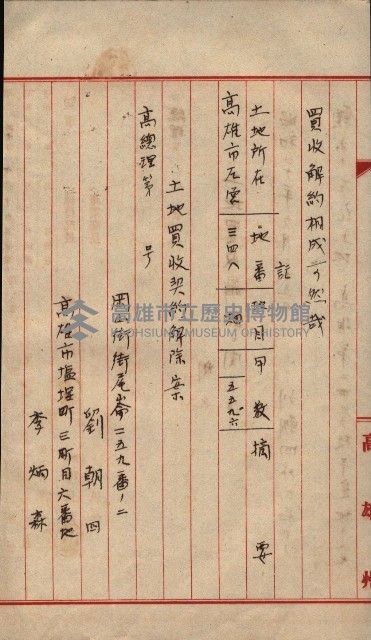 買收解約相成可然哉
記
土地所在 地番 地目 甲數 摘要
高雄市左營 三四八 畑 五五九六
土地買收契約解除案
高總理第 号
岡山街街尾崙二五九番ノ二
劉朝四
高雄市塩埕町三町目六番地
李炳森
高雄州
高雄市立歷史博物館
KAOHSIUNG MUSEUM OF HISTORY